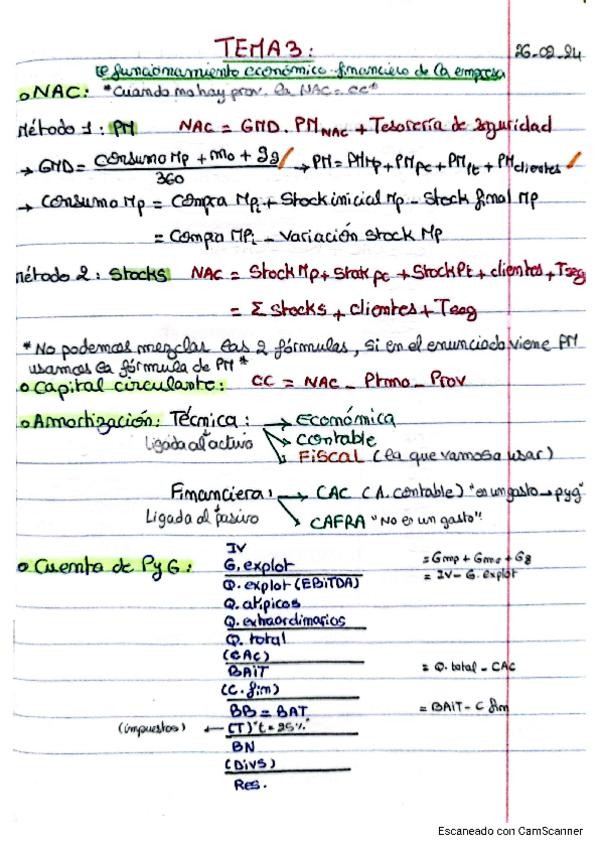 TEMA 3:
26.02.24
el funcionamiento económico-financiero de la empresa
o NAC: *Cuando no hay prov. la NAC = CC*
Método 1: PM NAC = GMD . PM NAC + Tesorería de seguridad
→ GMD = Consumo Mp + mo + gg / 360 → PM = PMMp + PMpc + PMpt + PMclientes
→ Consumo Mp = Compra Mp + Stock inicial Mp - Stock final Mp
= Compra MP - Variación Stock Mp
Método 2: Stocks NAC = Stock Mp + Stock pc + Stock Pt + clientes + Tseg
= Σ Stocks + clientes + Tseg
*No podemos mezclar las 2 fórmulas, si en el enunciado viene PM
usamos la fórmula de PM*
o Capital circulante: CC = NAC - Ptmo - Prov
o Amortización: Técnica: → Económica
Ligada al activo → Contable
→ FISCAL (la que vamos a usar)
Financiera: → CAC (A. contable) "es un gasto → pyg"
Ligada al pasivo → CAFRA "No es un gasto"
IV
o Cuenta de PyG: G. explot = Gmp + Gmo + Gg
Q. explot (EBITDA) = IV - G. explot
Q. atípicos
Q. extraordinarios
Q. total
(CAC)
BAIT = Q. total - CAC
(C. fin)
BB = BAT = BAIT - C fin
(impuestos) ← (T) "t = 25%"
BN
(Divs)
Res.
Escaneado con CamScanner